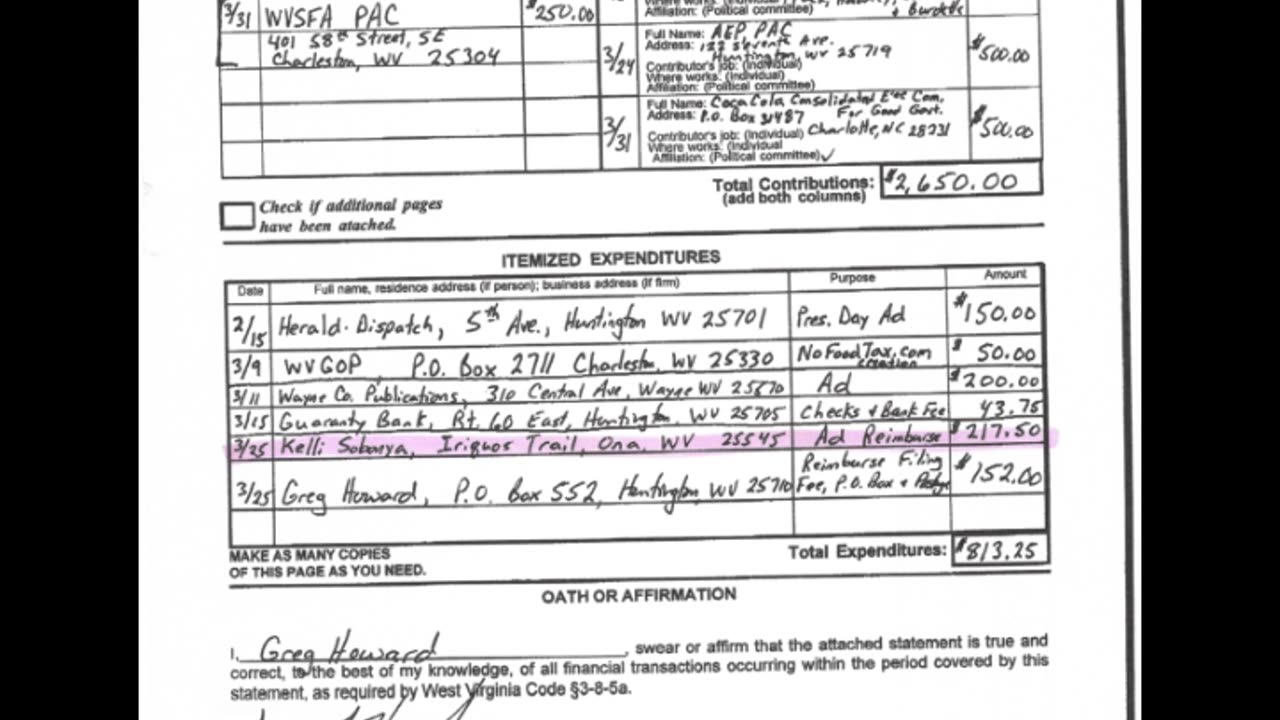 & Burdette
Affiliation: (Political committee)
3/31 WVSFA PAC $250.00
401 58th Street, SE
Charleston, WV 25304
3/24 Full Name: AEP PAC $500.00
Address: Seventh Ave.
Huntington, WV 25719
Contributor's job: (Individual)
Where works: (Individual)
Affiliation: (Political committee)
3/31 Full Name: Coca Cola Consolidated Com. $500.00
Address: P.O. Box 31487 For Good Govt.
Contributor's job: (Individual) Charlotte, NC 28231
Where works: (Individual
Affiliation: (Political committee) ✓
Total Contributions: $2,650.00
(add both columns)
Check if additional pages
have been atached.
ITEMIZED EXPENDITURES
Date Full name, residence address (if person); business address (if firm) Purpose Amount
2/15 Herald-Dispatch, 5th Ave., Huntington WV 25701 Pres. Day Ad $150.00
3/9 WVGOP, P.O. Box 2711 Charleston, WV 25330 NoFoodTax.com creation $50.00
3/11 Wayne Co. Publications, 310 Central Ave, Wayne WV 25570 Ad $200.00
3/15 Guaranty Bank, Rt. 60 East, Huntington, WV 25705 Checks & Bank Fee 43.75
3/25 Kelli Sobonya, Iriquos Trail, Ona, WV 25545 Ad Reimburse $217.50
3/25 Greg Howard, P.O. Box 552, Huntington WV 25710 Reimburse Filing $152.00
Fee, P.O. Box + Postage
MAKE AS MANY COPIES
OF THIS PAGE AS YOU NEED.
Total Expenditures: $813.25
OATH OR AFFIRMATION
I, Greg Howard, swear or affirm that the attached statement is true and
correct, to the best of my knowledge, of all financial transactions occurring within the period covered by this
statement, as required by West Virginia Code §3-8-5a.